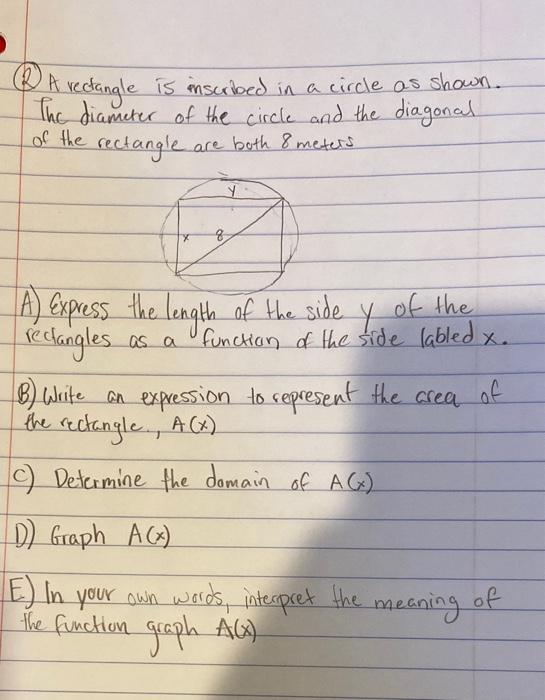 ② A rectangle is inscribed in a circle as shown.
The diameter of the circle and the diagonal
of the rectangle are both 8 meters
y
x 8
A) Express the length of the side y of the
rectangles as a function of the side labled x.
B) Write an expression to represent the area of
the rectangle, A(x)
C) Determine the domain of A(x)
D) Graph A(x)
E) In your own words, interpret the meaning of
the function graph A(x)